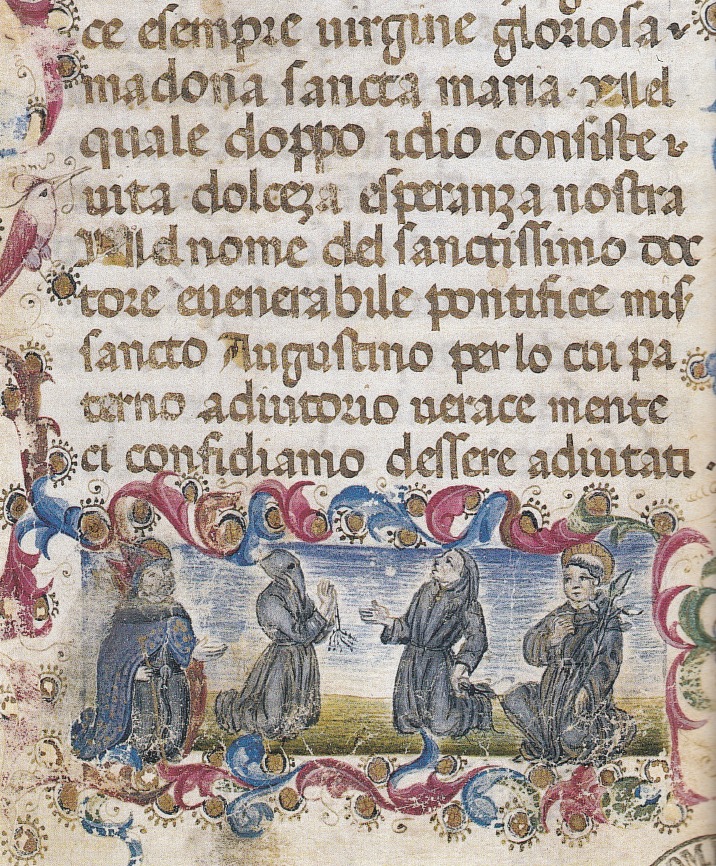 ce esempre uirgine gloriosa
madona sancta maria. Nel
quale doppo idio consiste
uita dolceza esperanza nostra
Nel nome del sanctissimo doc
tore euenerabile pontifice mis
sancto Augustino per lo cui pa
terno adiutorio uerace mente
ci confidiamo dessere adiutati.